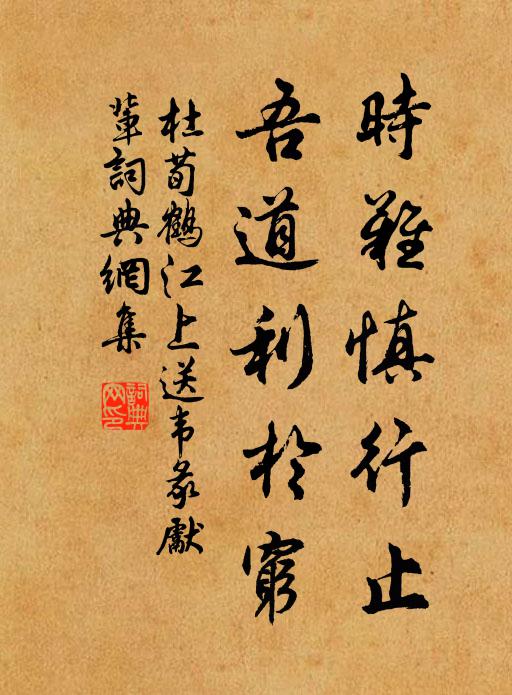 時難慎行止
吾道利於窮
杜荀鶴江上送韦彖獻
輩詞典網集
詞典
网印